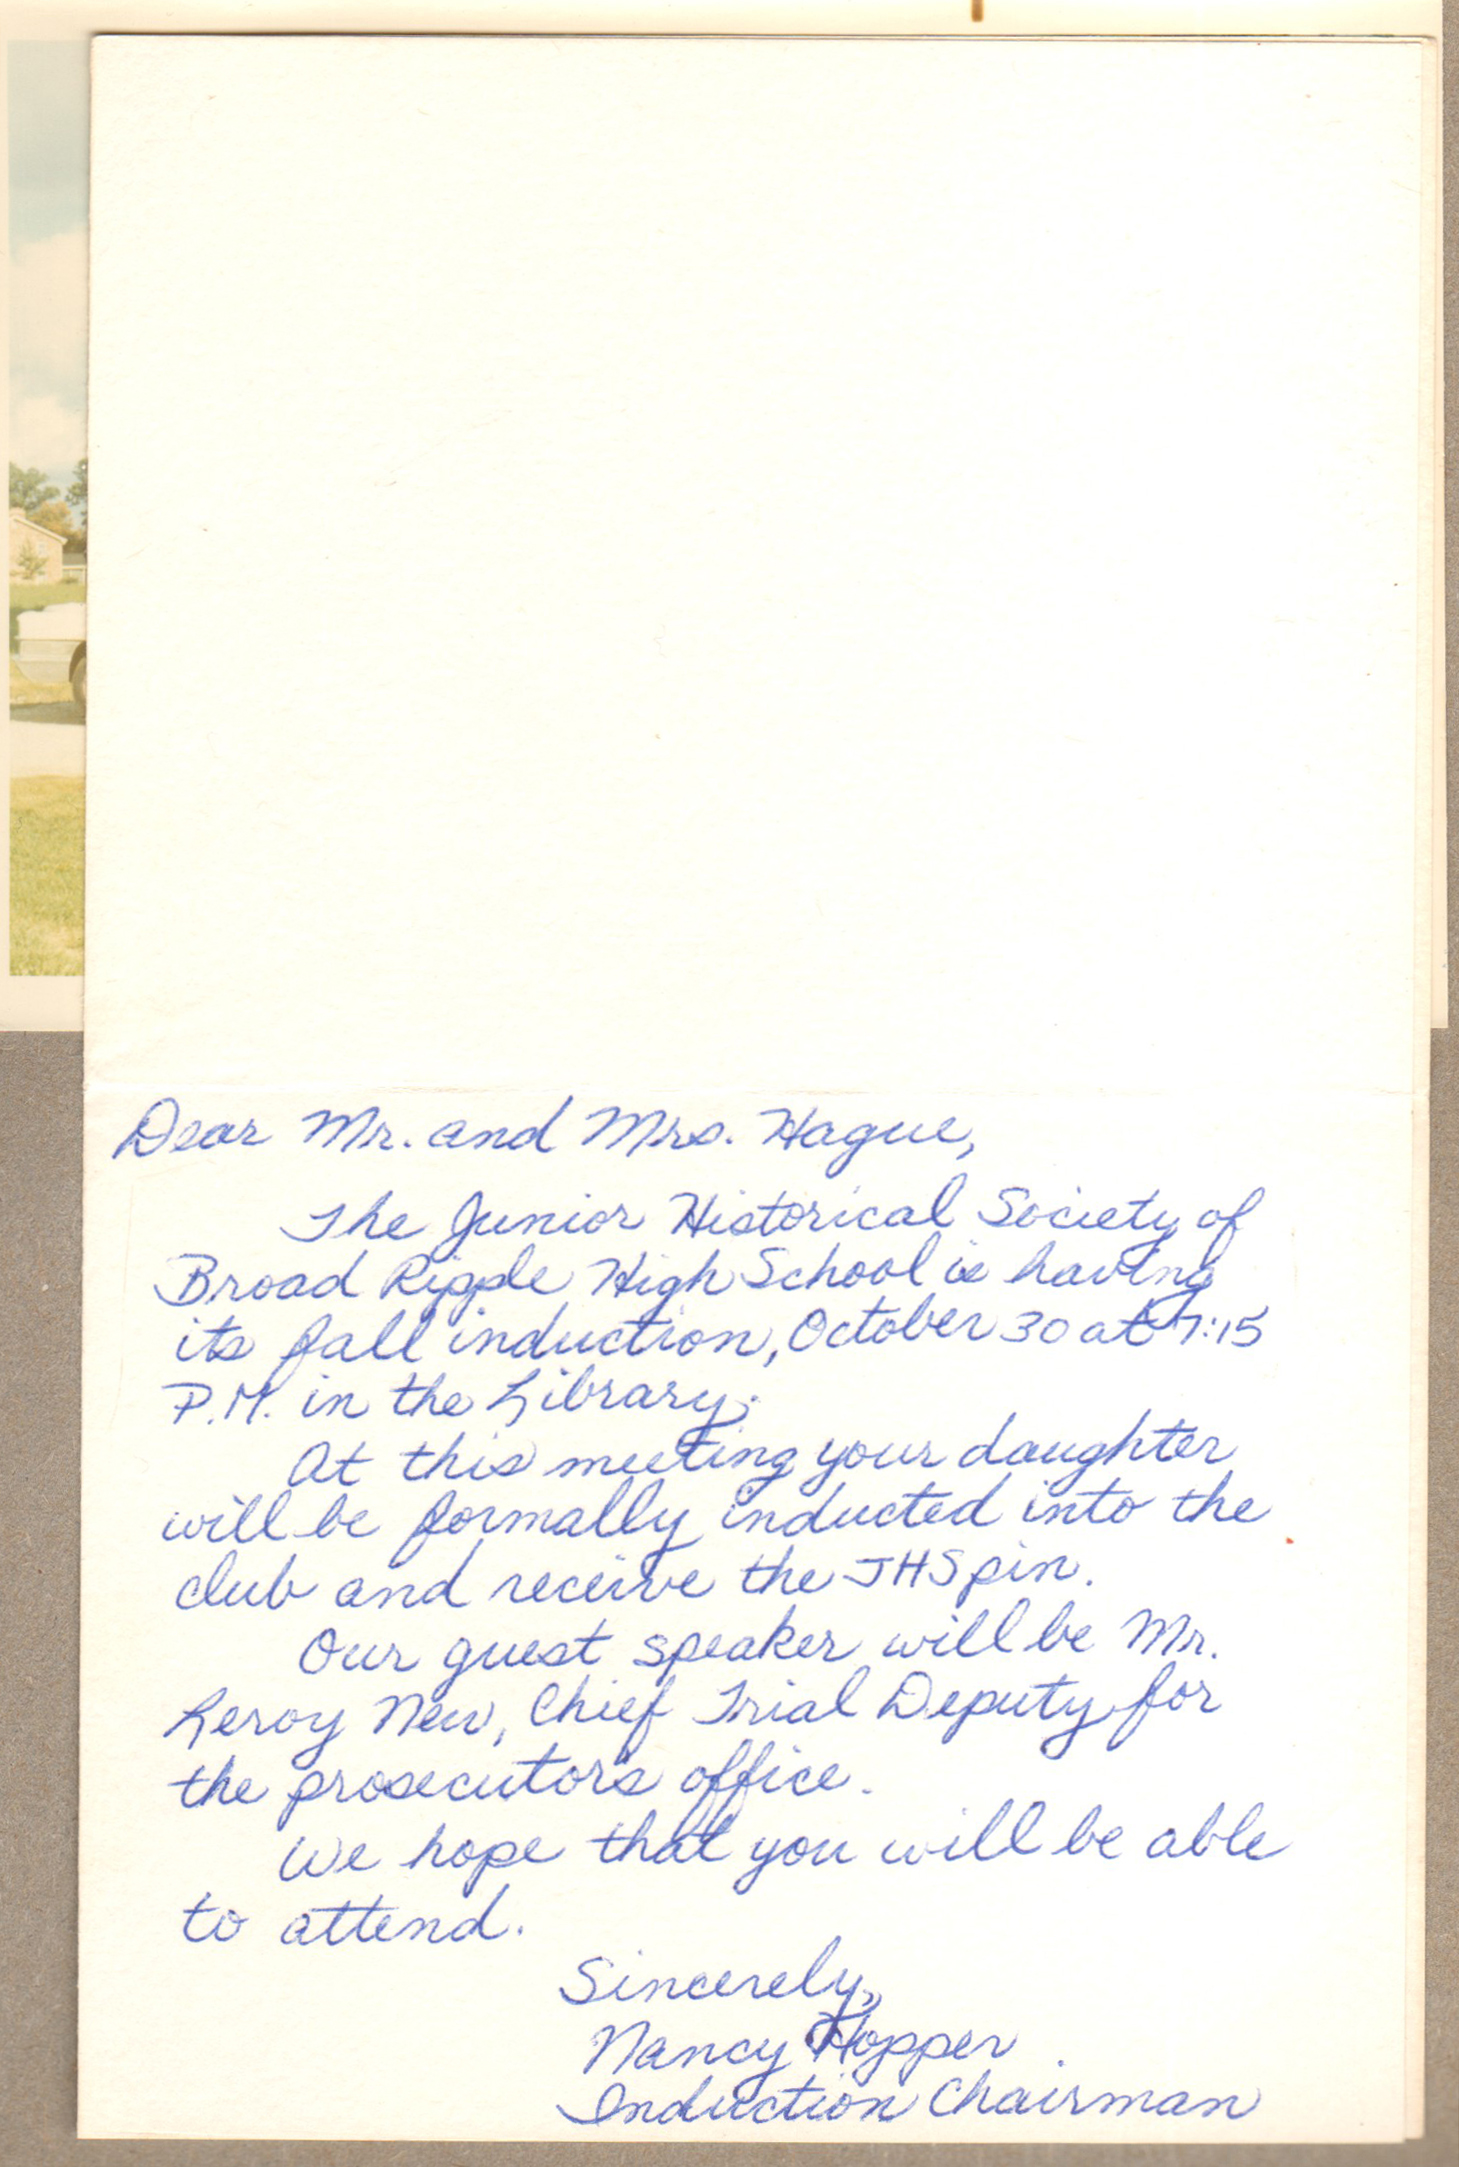 Dear Mr. and Mrs. Hague,
The Junior Historical Society of
Broad Ripple High School is having
its fall induction, October 30 at 7:15
P.M. in the Library.
At this meeting your daughter
will be formally inducted into the
club and receive the JHS pin.
Our guest speaker will be Mr.
Leroy New, Chief Trial Deputy for
the prosecutors office.
We hope that you will be able
to attend.
Sincerely,
Nancy Hopper
Induction Chairman